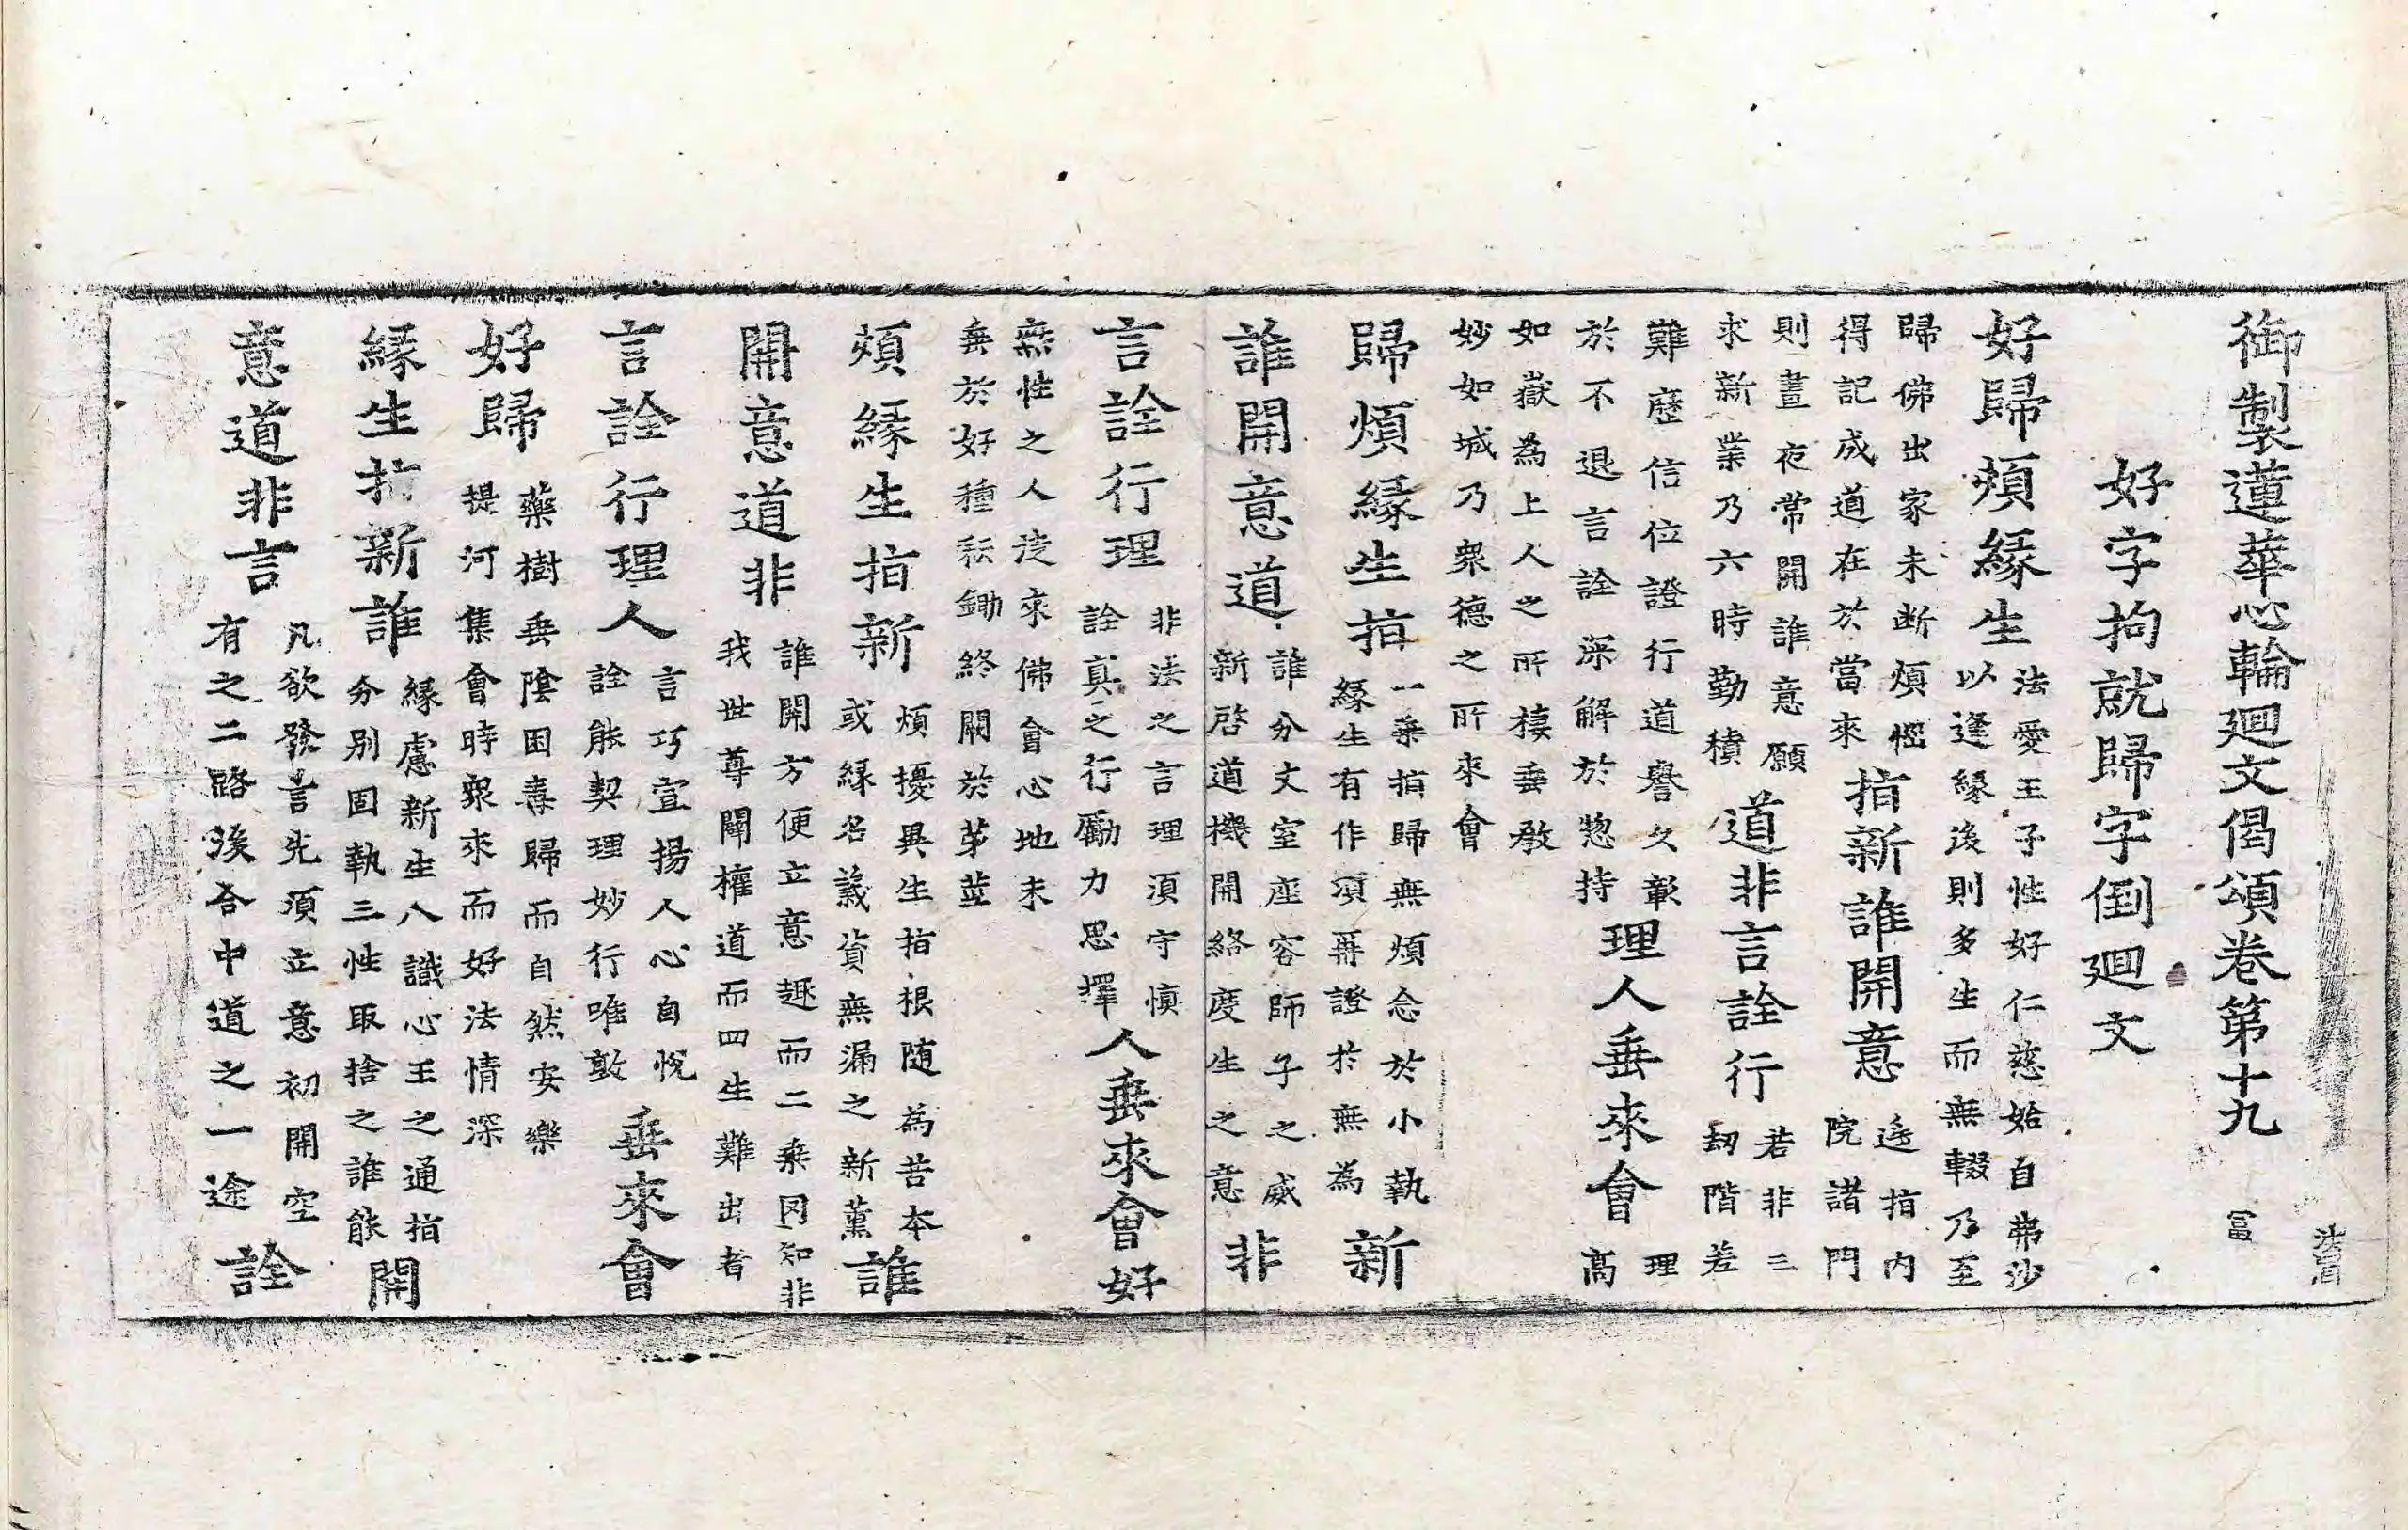 御製蓮華心輪廻文偈頌卷第十九 冨
好字拘就歸字倒廻文
好歸煩緣生 法愛王子性好仁慈始自弗沙
以逢緣後則多生而無輟乃至
歸佛出家未断煩惱
得記成道在於當來 指新誰開意 遥指内
院諸門
則晝夜常開誰意願
求新業乃六時勤積 道非言詮行 若非三
劫階差
難歷信位證行道譽久彰
於不退言詮深解於惣持 理人垂來會 理
高
如嶽為上人之所棲垂教
妙如城乃衆德之所來會
歸煩緣生指 一乗指歸無煩念於小執
緣生有作湏再證於無為 新
誰開意道 誰分文室座容師子之威
新啓道機開絡度生之意 非
言詮行理 非法之言理湏守慎
詮真之行勵力思擇 人垂來會好
無性之人徒來佛會心地未
垂於好種耘鋤終闕於茅莚
煩緣生指新 煩擾異生指根随為苦本
或緣名義資無漏之新薰 誰
開意道非 誰開方便立意趣而二乗罔知非
我世尊闡權道而四生難出者
言詮行理人 言巧宣揚人心自悅
詮能契理妙行唯敦 垂來會
好歸 藥樹垂陰困毒歸而自然安樂
提河集會時衆來而好法情深
緣生指新誰 緣慮新生八識心王之通指
分別固執三性取捨之誰能 開
意道非言 凡欲發言先湏立意初開空
有之二路後合中道之一途 詮